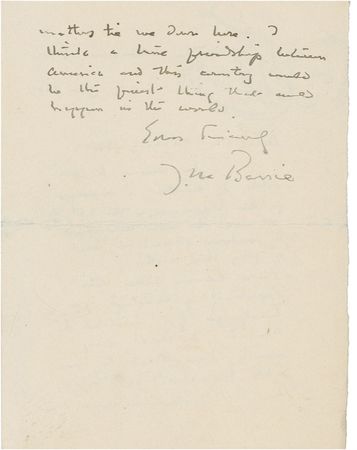 matters tie we down here. I
think a true friendship between
America and this country would
be the finest thing that could
happen in the world.
Yours sincerely
J. M. Barrie